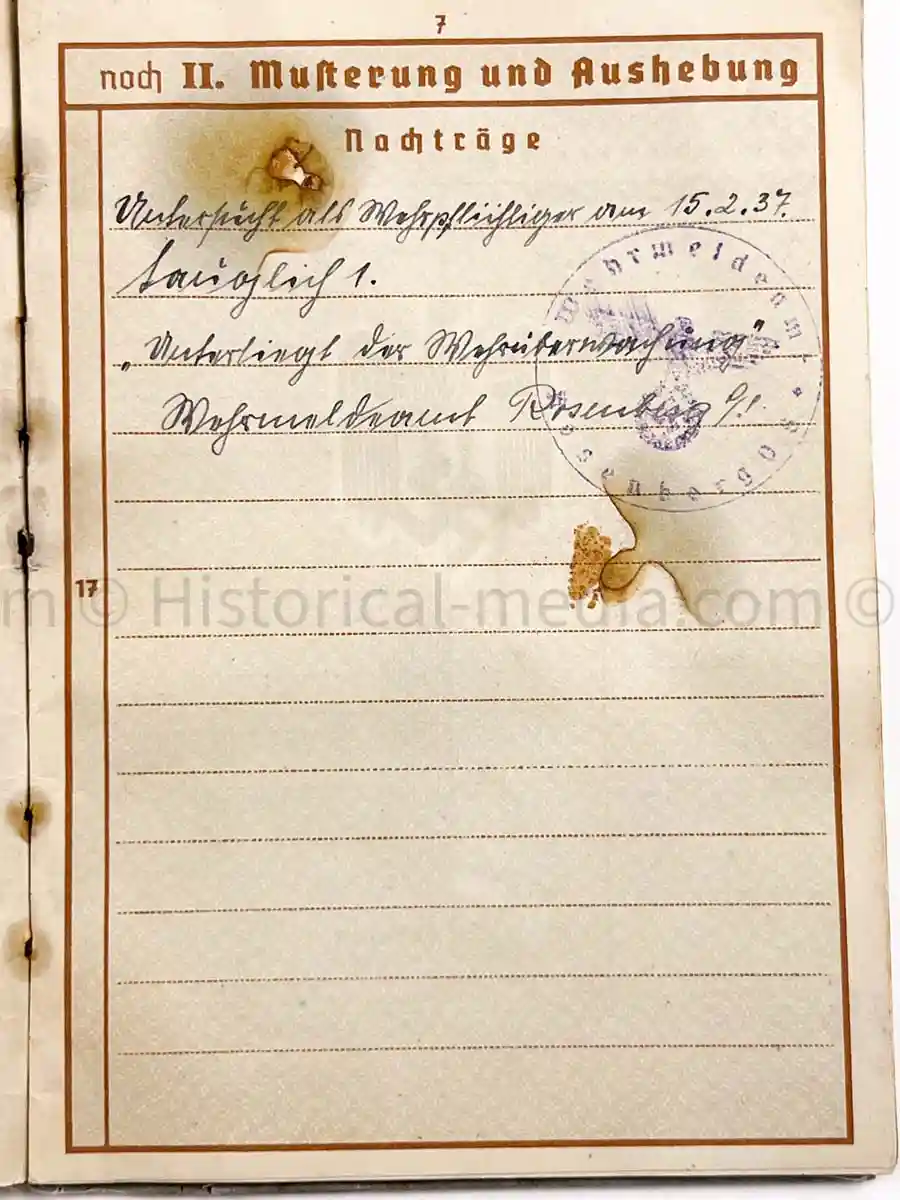 7
noch II. Musterung und Aushebung
Nachträge
Untersucht als Wehrpflichtiger am 15.2.37.
tauglich 1.
„Unterliegt der Wehrüberwachung"
Wehrmeldeamt Rosenberg O/S.
Wehrmeldeamt
Rosenberg O
17
m © Historical-media.com ©